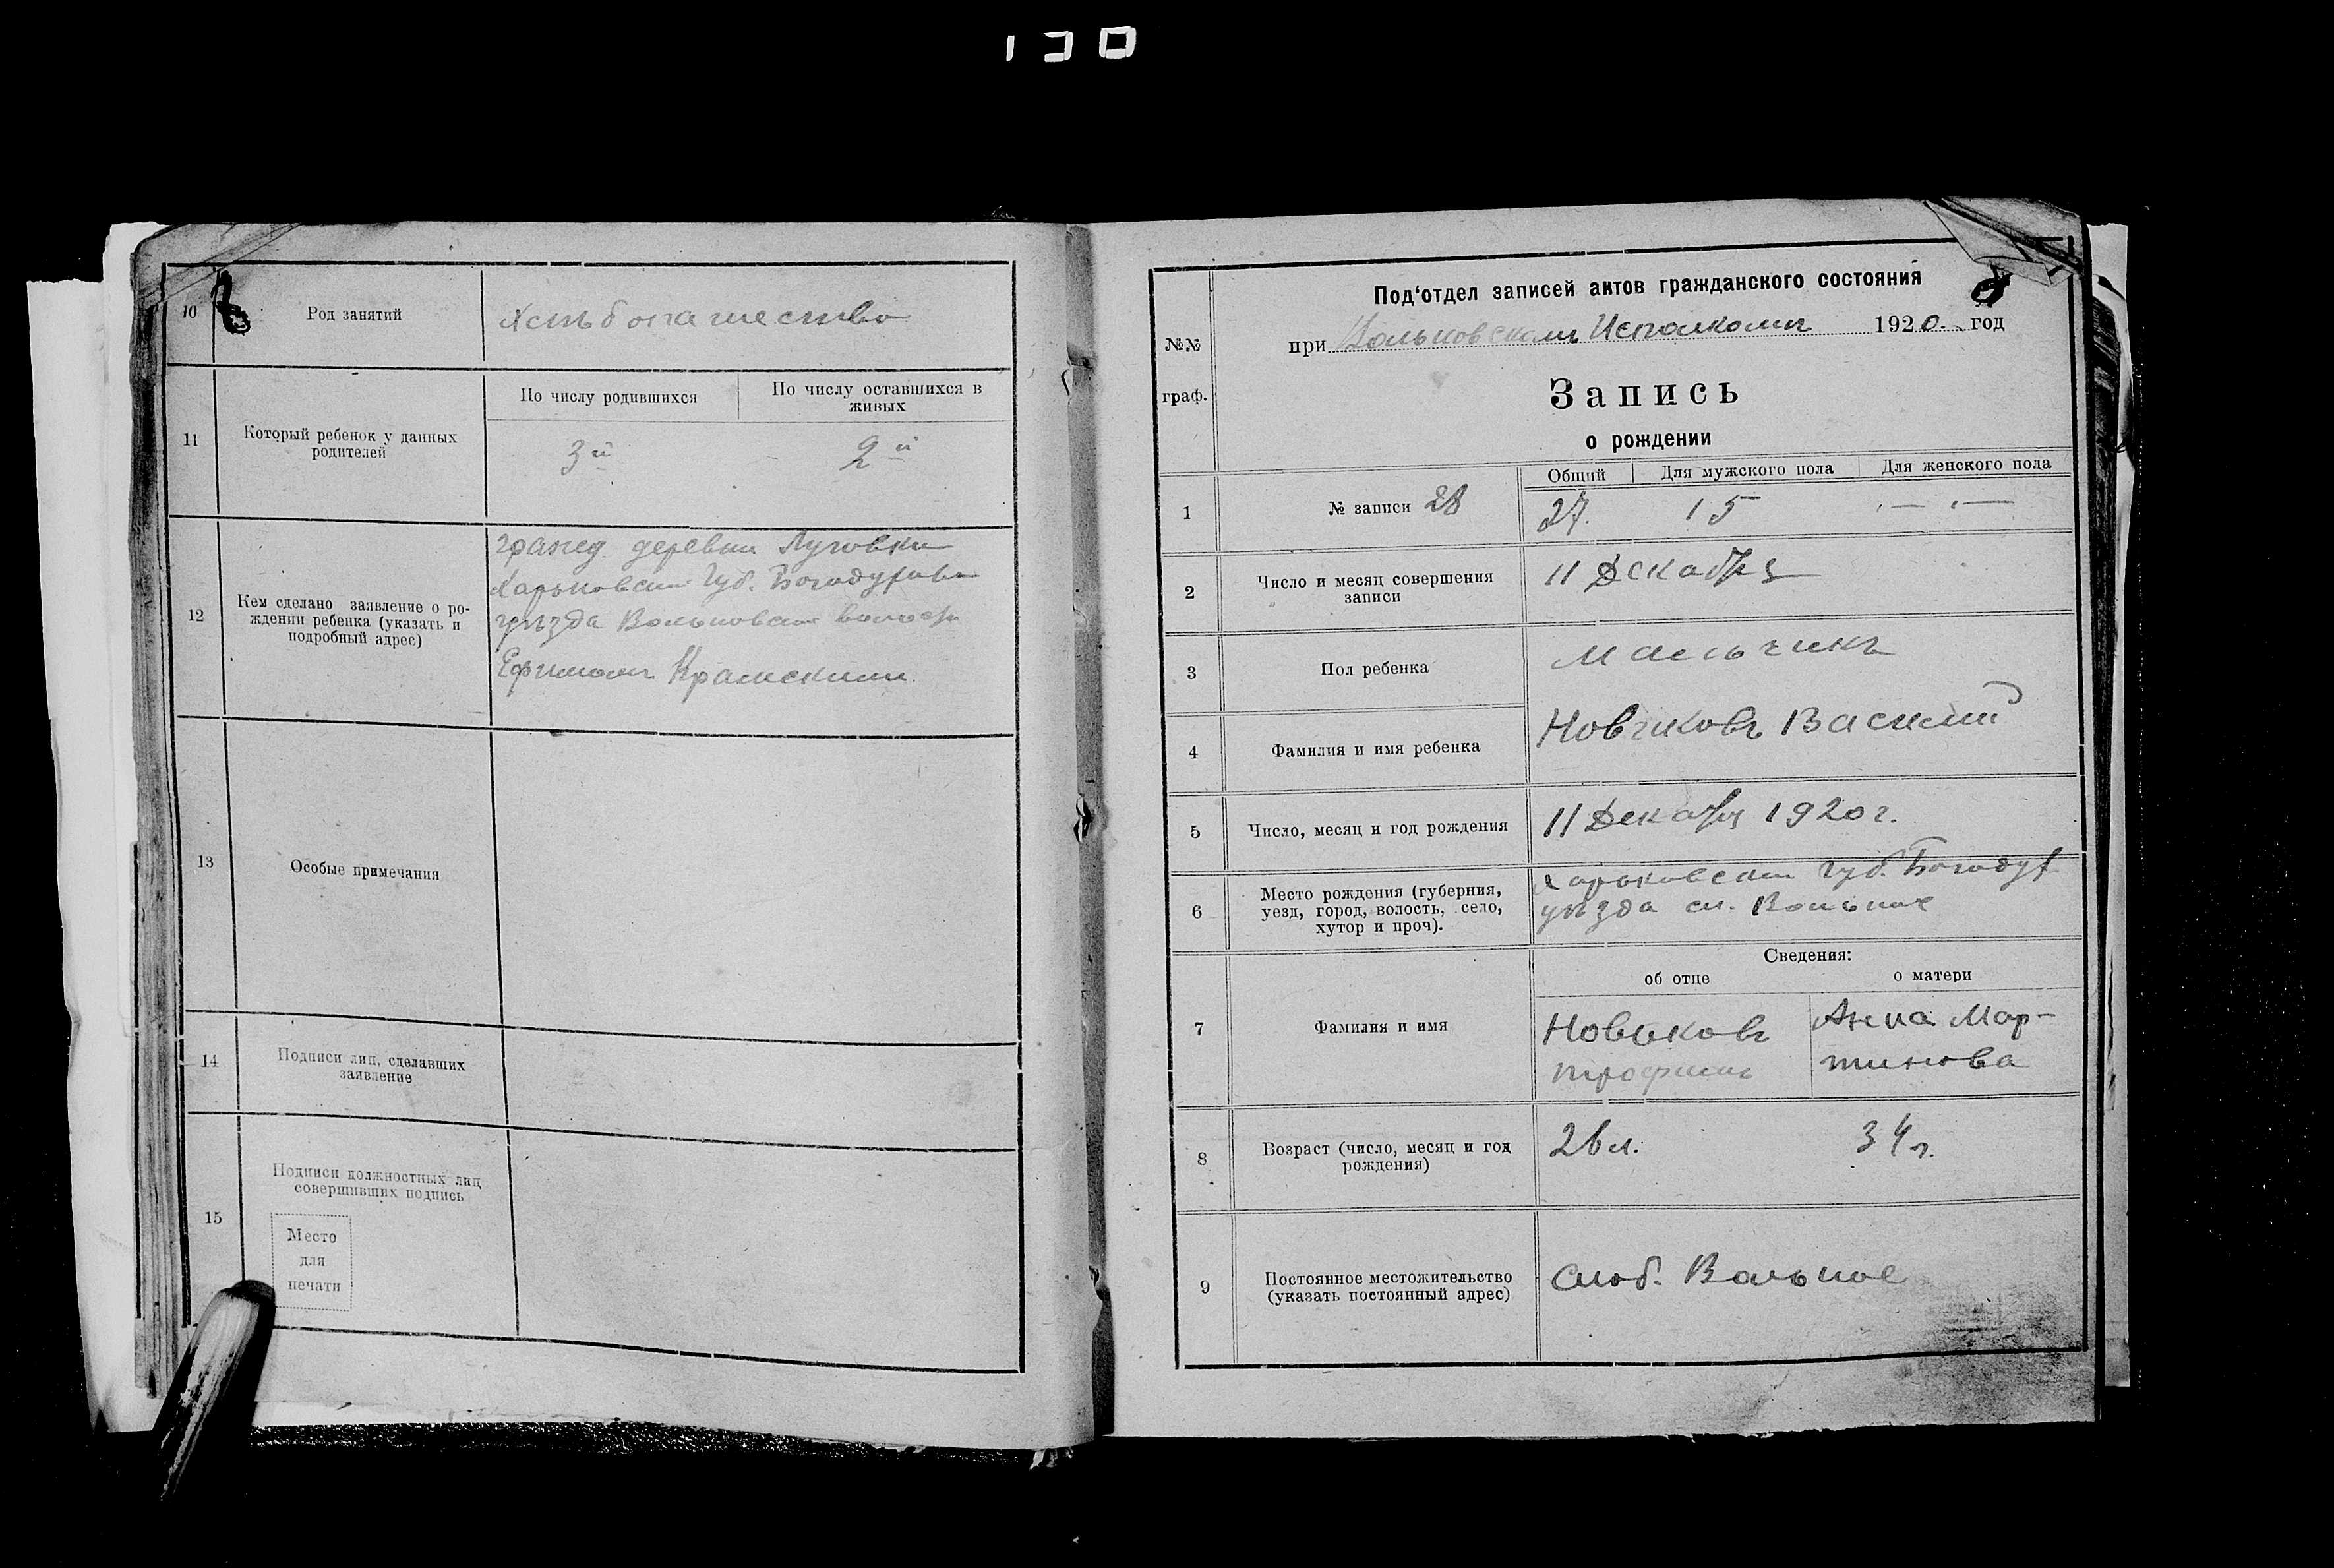 130
10
Род занятий
Хлѣбопашество
11
Который ребенок у данных
родителей
По числу родившихся
По числу оставшихся в
живых
3й
2й
12
Кем сделано заявление о ро-
ждении ребенка (указать и
подробный адрес)
гражд. деревни Луговки
Харьковской Губ. Богодухов
уѣзда Вольновской волости
Ефимомъ Крамскимъ
13
Особые примечания
14
Подписи лиц, сделавших
заявление
15
Подписи должностных лиц
совершивших подпись
Место
для
печати
№№
граф.
Под‘отдел записей актов гражданского состояния
при Вольновскомъ Исполкомъ 1920. год
Запись
о рождении
Общий
Для мужского пола
Для женского пола
1
№ записи 28
27.
15
— —
2
Число и месяц совершения
записи
11 Декабря
3
Пол ребенка
Мальчикъ
4
Фамилия и имя ребенка
Новиковъ Василий
5
Число, месяц и год рождения
11 Декабря 1920 г.
6
Место рождения (губерния,
уезд, город, волость, село,
хутор и проч).
Харьковской губ. Богодух
уѣзда сл. Вольное
Сведения:
об отце
о матери
7
Фамилия и имя
Новиковъ
Трофимъ
Анна Мар-
тинова
8
Возраст (число, месяц и год
рождения)
26 л.
34 г.
9
Постоянное местожительство
(указать постоянный адрес)
Слоб. Вольное